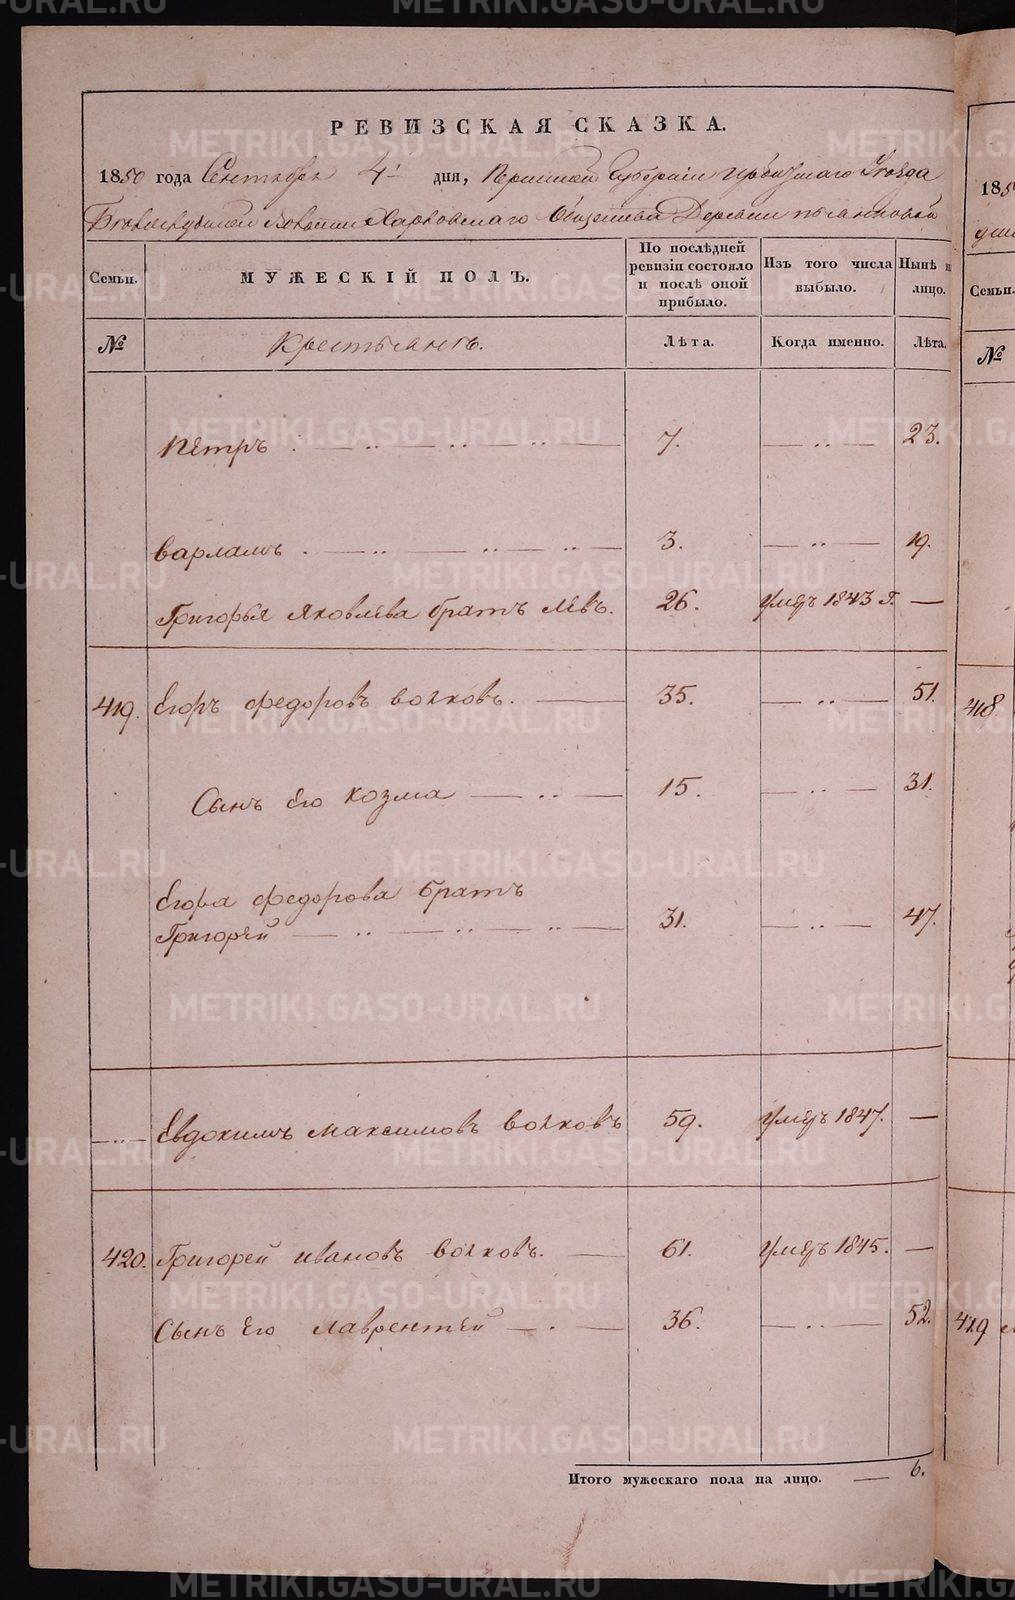 METRIKI.GASO-URAL.RU
РЕВИЗСКАЯ СКАЗКА.
1850 года Сентября 4 дня, Пермской Губернии Ирбитскаго Уезда
Волости Харловскаго Общества Деревни
Семьи. МУЖЕСКІЙ ПОЛЪ. По послѣдней ревизіи состояло и послѣ оной прибыло. Изъ того числа выбыло. Нынѣ на лицо.
№ Крестьянъ. Лѣта. Когда именно. Лѣта.
Петръ 7. 23.
Варламъ 3. 19.
Григорья Яковлева братъ Левъ. 26. Умеръ 1843 г. —
419. Егоръ Федоровъ Волковъ. 35. 51.
Сынъ Его Козма 15. 31.
Егора Федорова братъ
Григорей 31. 47.
Евдокимъ Максимовъ Волковъ 59. Умеръ 1847. —
420. Григорей Ивановъ Волковъ. 61. Умеръ 1845. —
Сынъ Его Лаврентей 36. 52.
Итого мужескаго пола на лицо. — 6.
185
Семьи.
№
418
419